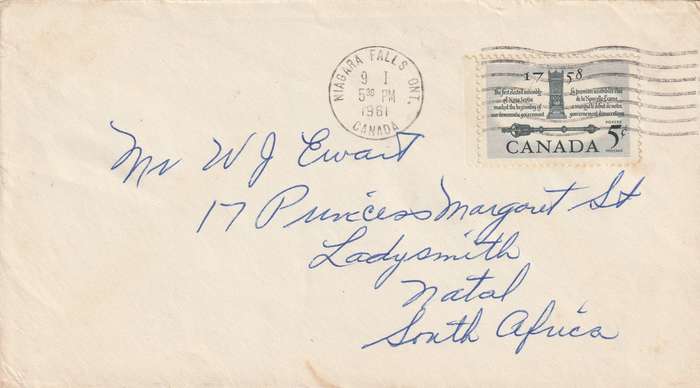 NIAGARA FALLS ONT.
9 I
5³⁰ PM
1961
CANADA
17 58
The first elected assembly
of Nova Scotia
marked the beginning of
our democratic government
La première assemblée élue
de la Nouvelle-Écosse
a marqué le début de notre
gouvernement démocratique
POSTES
5¢
POSTAGE
CANADA
Mr W J Ewart
17 Princess Margaret St
Ladysmith
Natal
South Africa